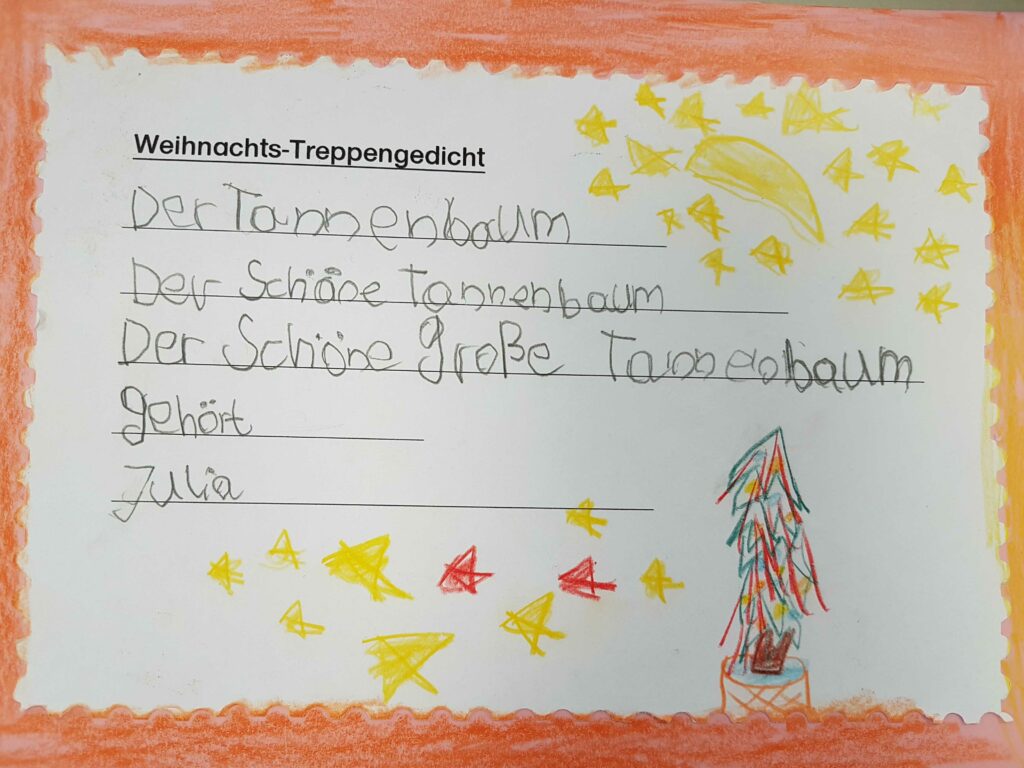 Weihnachts-Treppengedicht
Der Tannenbaum
Der Schöne Tannenbaum
Der Schöne große Tannenbaum
gehört
Julia